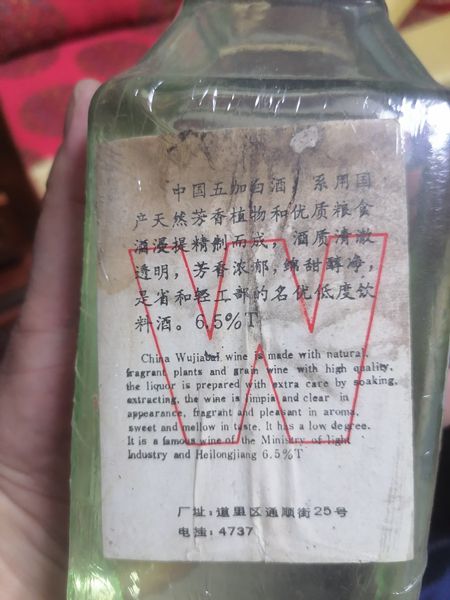 中国五加白酒，系用国
产天然芳香植物和优质粮食
酒浸提精制而成，酒质清澈
透明，芳香浓郁，绵甜醇净，
是省和轻工部的名优低度饮
料酒。6.5%T
China Wujiabai wine is made with natural
fragrant plants and grain wine with high quality,
the liquor is prepared with extra care by soaking,
extracting, the wine is limpid and clear in
appearance, fragrant and pleasant in aroma,
sweet and mellow in taste. It has a low degree.
It is a famous wine of the Ministry of light
Industry and Heilongjiang 6.5%T
厂址：道里区通顺街25号
电挂：4737